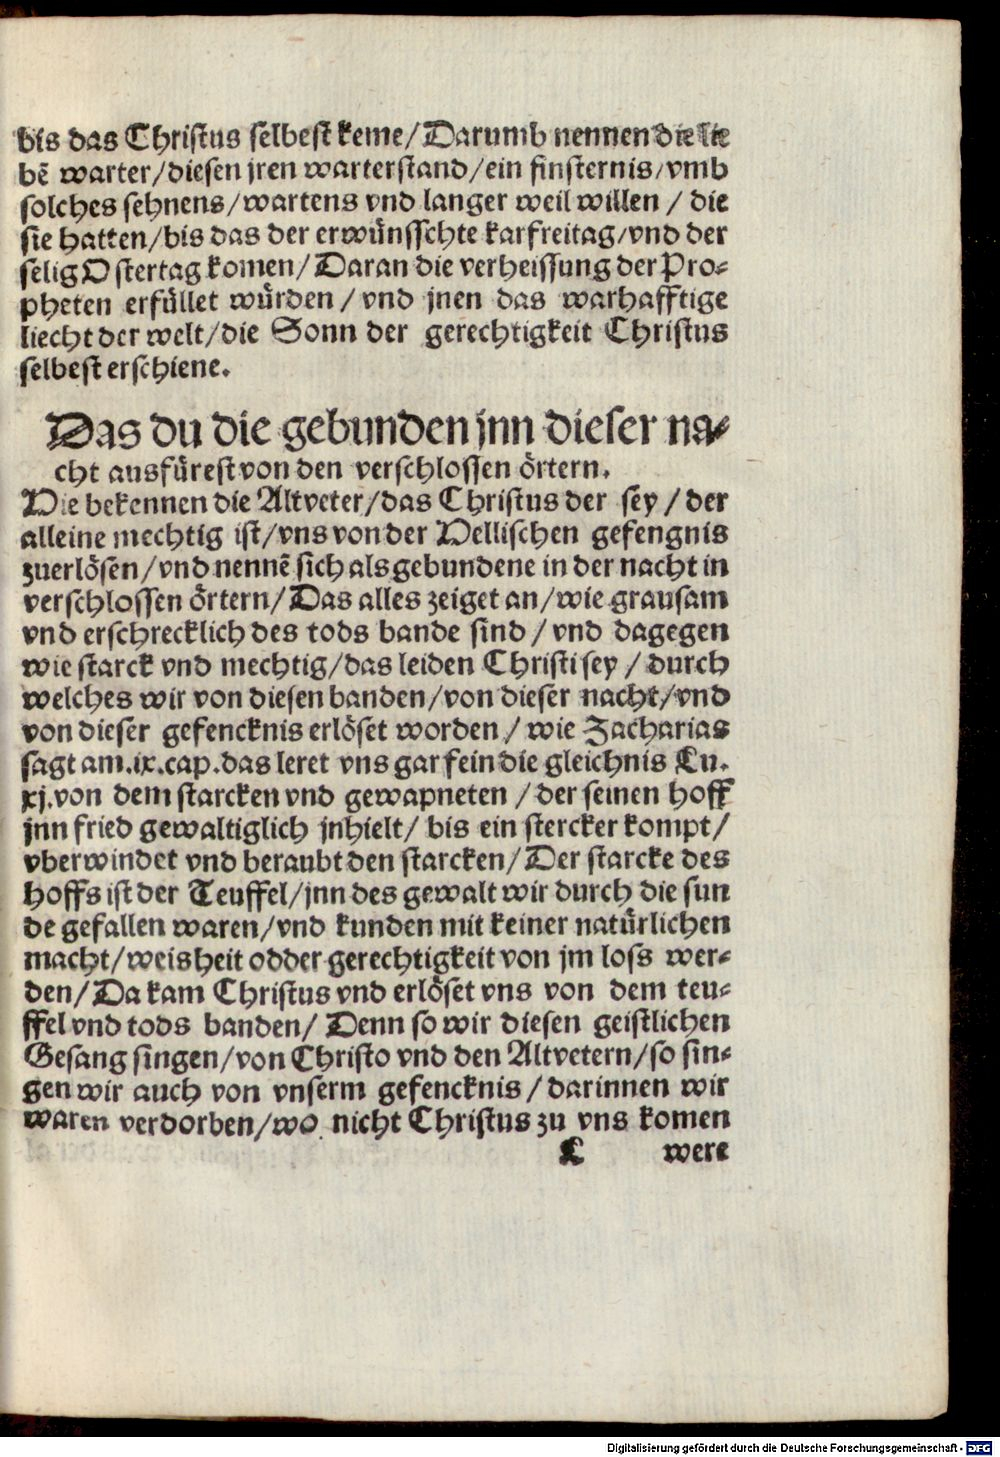 bis das Christus selbest keme/Darumb nennen die lie
bē warter/diesen jren warterstand/ein finsternis/vmb
solches sehnens/wartens vnd langer weil willen / die
sie hatten/bis das der erwünsschte karfreitag/vnd der
selig Ostertag komen/Daran die verheissung der Pro-
pheten erfüllet würden / vnd jnen das warhafftige
liecht der welt/die Sonn der gerechtigkeit Christus
selbest erschiene.
Das du die gebunden jnn dieser na-
cht ausfürest von den verschlossen örtern.
Hie bekennen die Altveter/das Christus der sey / der
alleine mechtig ist/vns von der Hellischen gefengnis
zuerlösen/vnd nennē sich als gebundene in der nacht in
verschlossen örtern/Das alles zeiget an/wie grausam
vnd erschrecklich des tods bande sind / vnd dagegen
wie starck vnd mechtig/das leiden Christi sey / durch
welches wir von diesen banden/von dieser nacht/vnd
von dieser gefencknis erlöset worden / wie Zacharias
sagt am.ix.cap.das leret vns gar fein die gleichnis Lu.
xj.von dem starcken vnd gewapneten / der seinen hoff
jnn fried gewaltiglich jnhielt/ bis ein stercker kompt/
vberwindet vnd beraubt den starcken/Der starcke des
hoffs ist der Teuffel/jnn des gewalt wir durch die sun
de gefallen waren/vnd kunden mit keiner natürlichen
macht/weisheit odder gerechtigkeit von jm loss wer-
den/Da kam Christus vnd erlöset vns von dem teu-
ffel vnd tods banden/ Denn so wir diesen geistlichen
Gesang singen/von Christo vnd den Altvetern/so sin-
gen wir auch von vnserm gefencknis / darinnen wir
waren verdorben/wo nicht Christus zu vns komen
L were
Digitalisierung gefördert durch die Deutsche Forschungsgemeinschaft - DFG